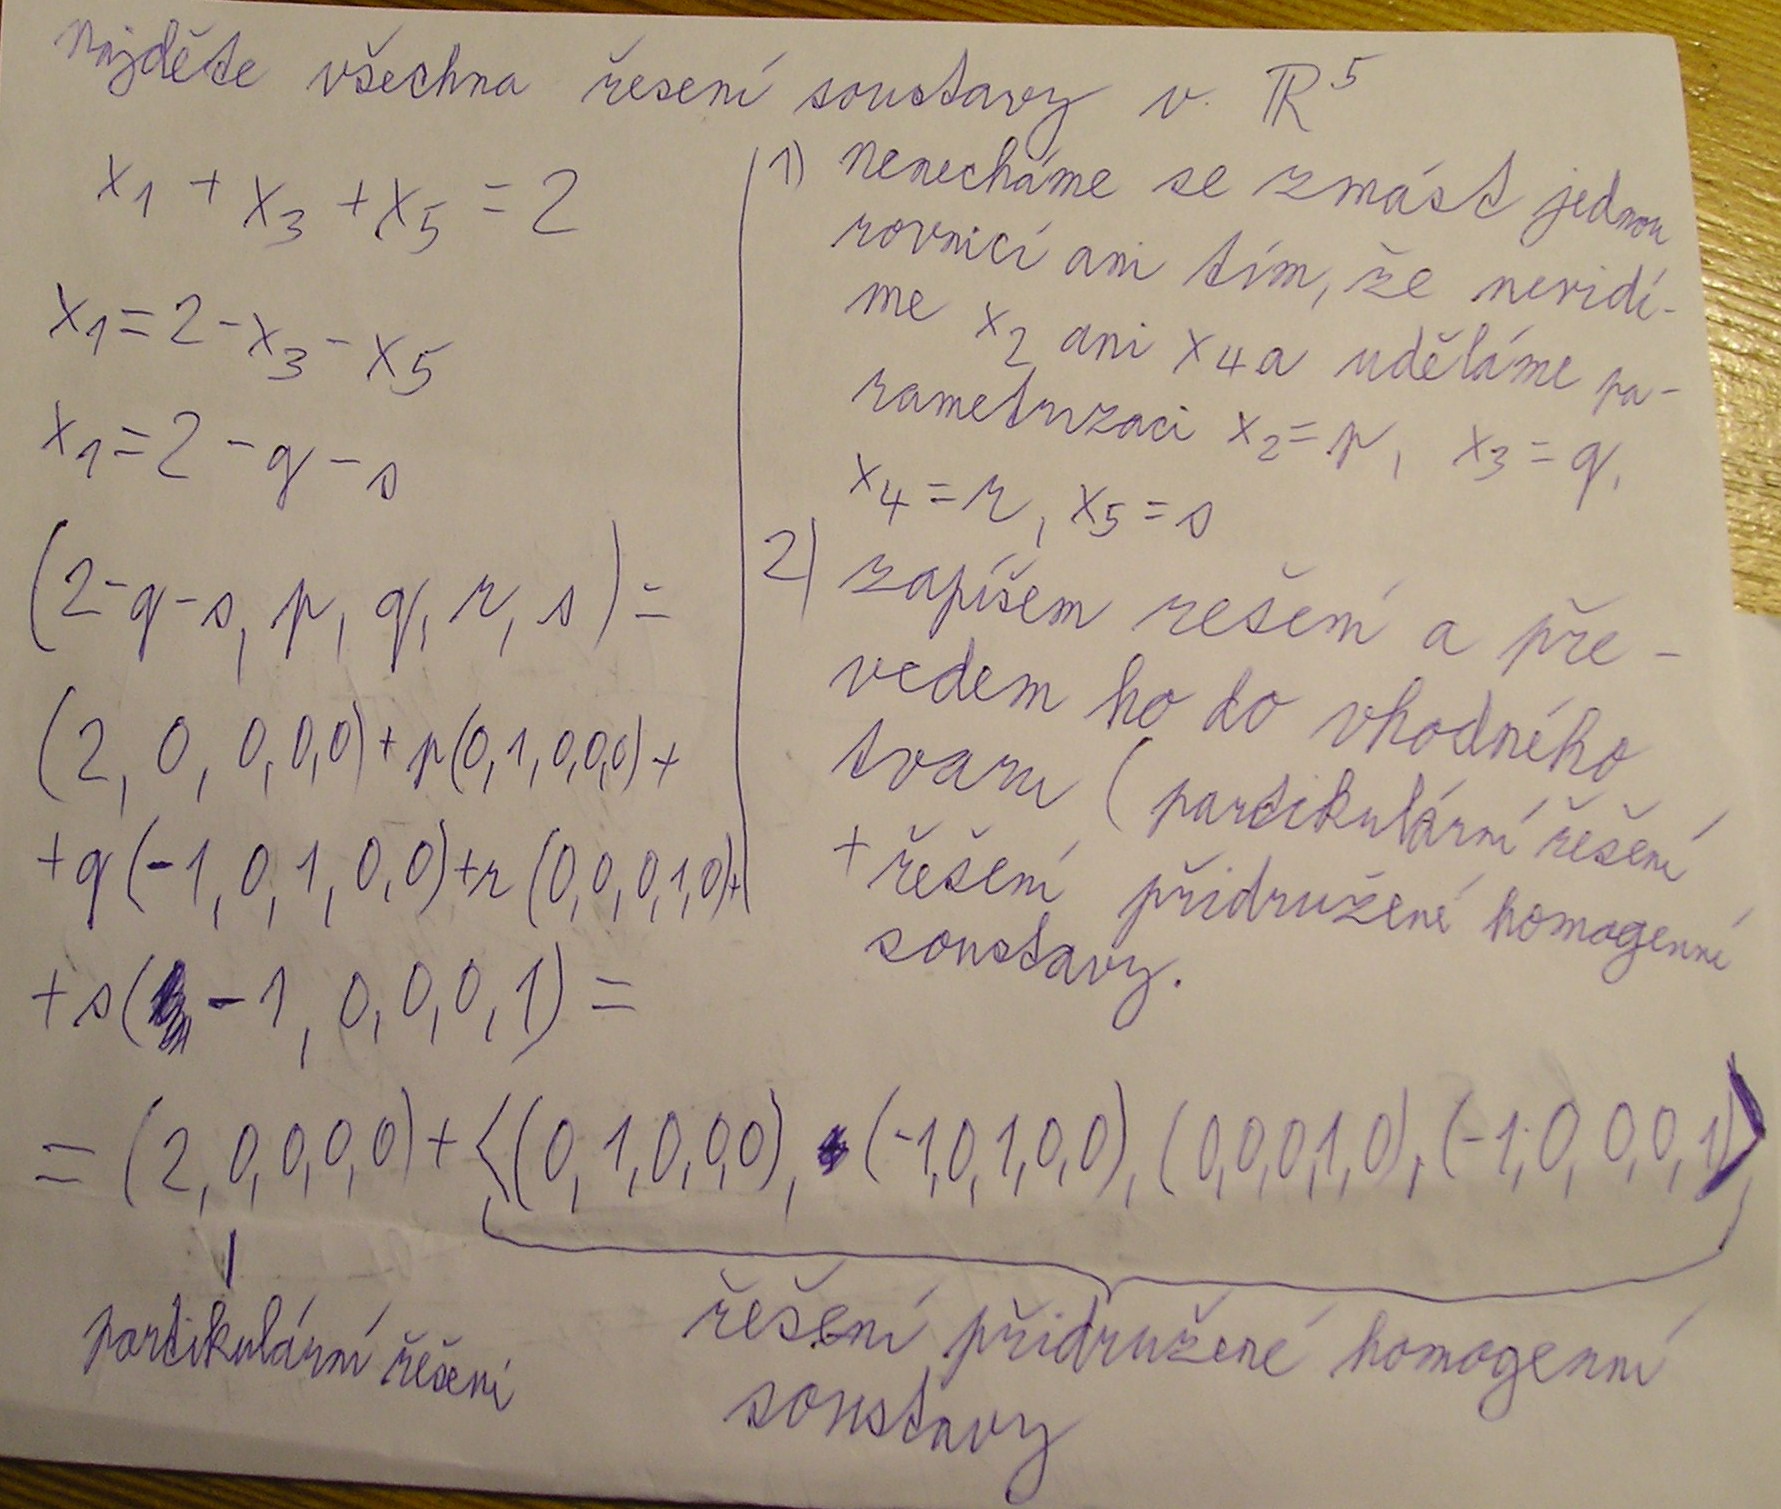 najděte všechna řesení soustavy v R⁵
x₁ + x₃ + x₅ = 2
x₁ = 2 - x₃ - x₅
x₁ = 2 - q - s
(2-q-s, p, q, r, s) =
(2, 0, 0,0,0) + p(0,1,0,0,0) +
+q(-1,0,1,0,0)+r(0,0,0,1,0)+
+s(-1,0,0,0,1) =
1) nenecháme se zmást jednou
rovnicí ani tím, že nevidí-
me x₂ ani x₄ a uděláme pa-
rametrizaci x₂=p, x₃=q,
x₄=r, x₅=s
2) zapíšem rešení a pře-
vedem ho do vhodného
tvaru (partikulární řešení
+řešení přidružené homogenní
soustavy.
= (2,0,0,0,0) + <(0,1,0,0,0), (-1,0,1,0,0), (0,0,0,1,0), (-1,0,0,0,1)>
partikulární řěšení
řešení přidružené homogenní
soustavy